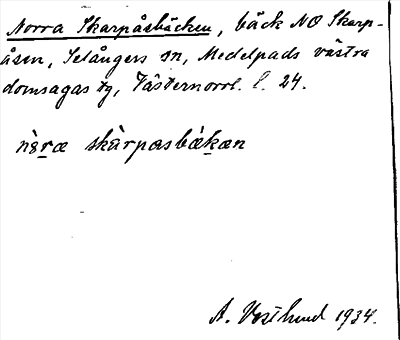 Norra Skarpåsbäcken, bäck NO Skarp-
åsen, Selångers sn, Medelpads västra
domsagas tg, Västernorrl. l. 24.
skàrpasbǽkæn
A. Vestlund 1934.